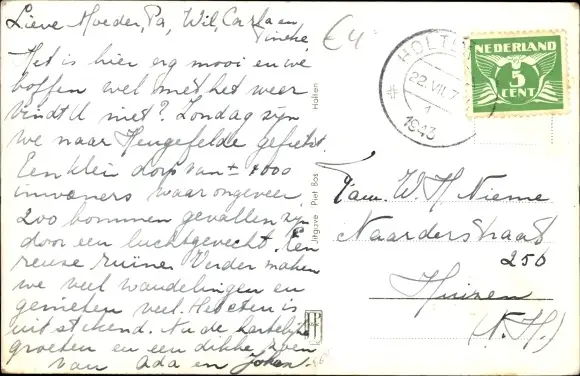 Lieve Moeder, Pa, Wil, Carla en
Pineke,
Het is hier erg mooi en we
boffen wel met het weer
vindt U niet? Zondag zijn
we naar Hengefelde gefietst.
Een klein dorp van ± 4000
inwoners waar ongeveer
200 bommen gevallen zijn
door een luchtgevecht. Een
reuse ruïne. Verder maken
we veel wandelingen en
genieten veel. Het eten is
uitstekend. Nu de hartelijke
groeten en een dikke zoen
van Ada en Johan.
€4
HOLTEN
22.VII.7
1
1943
NEDERLAND
5
CENT
Uitgave Piet Bos Holten
Fam. W. H. Nieme
Naarderstraat
250
Huizen
(N.H.)